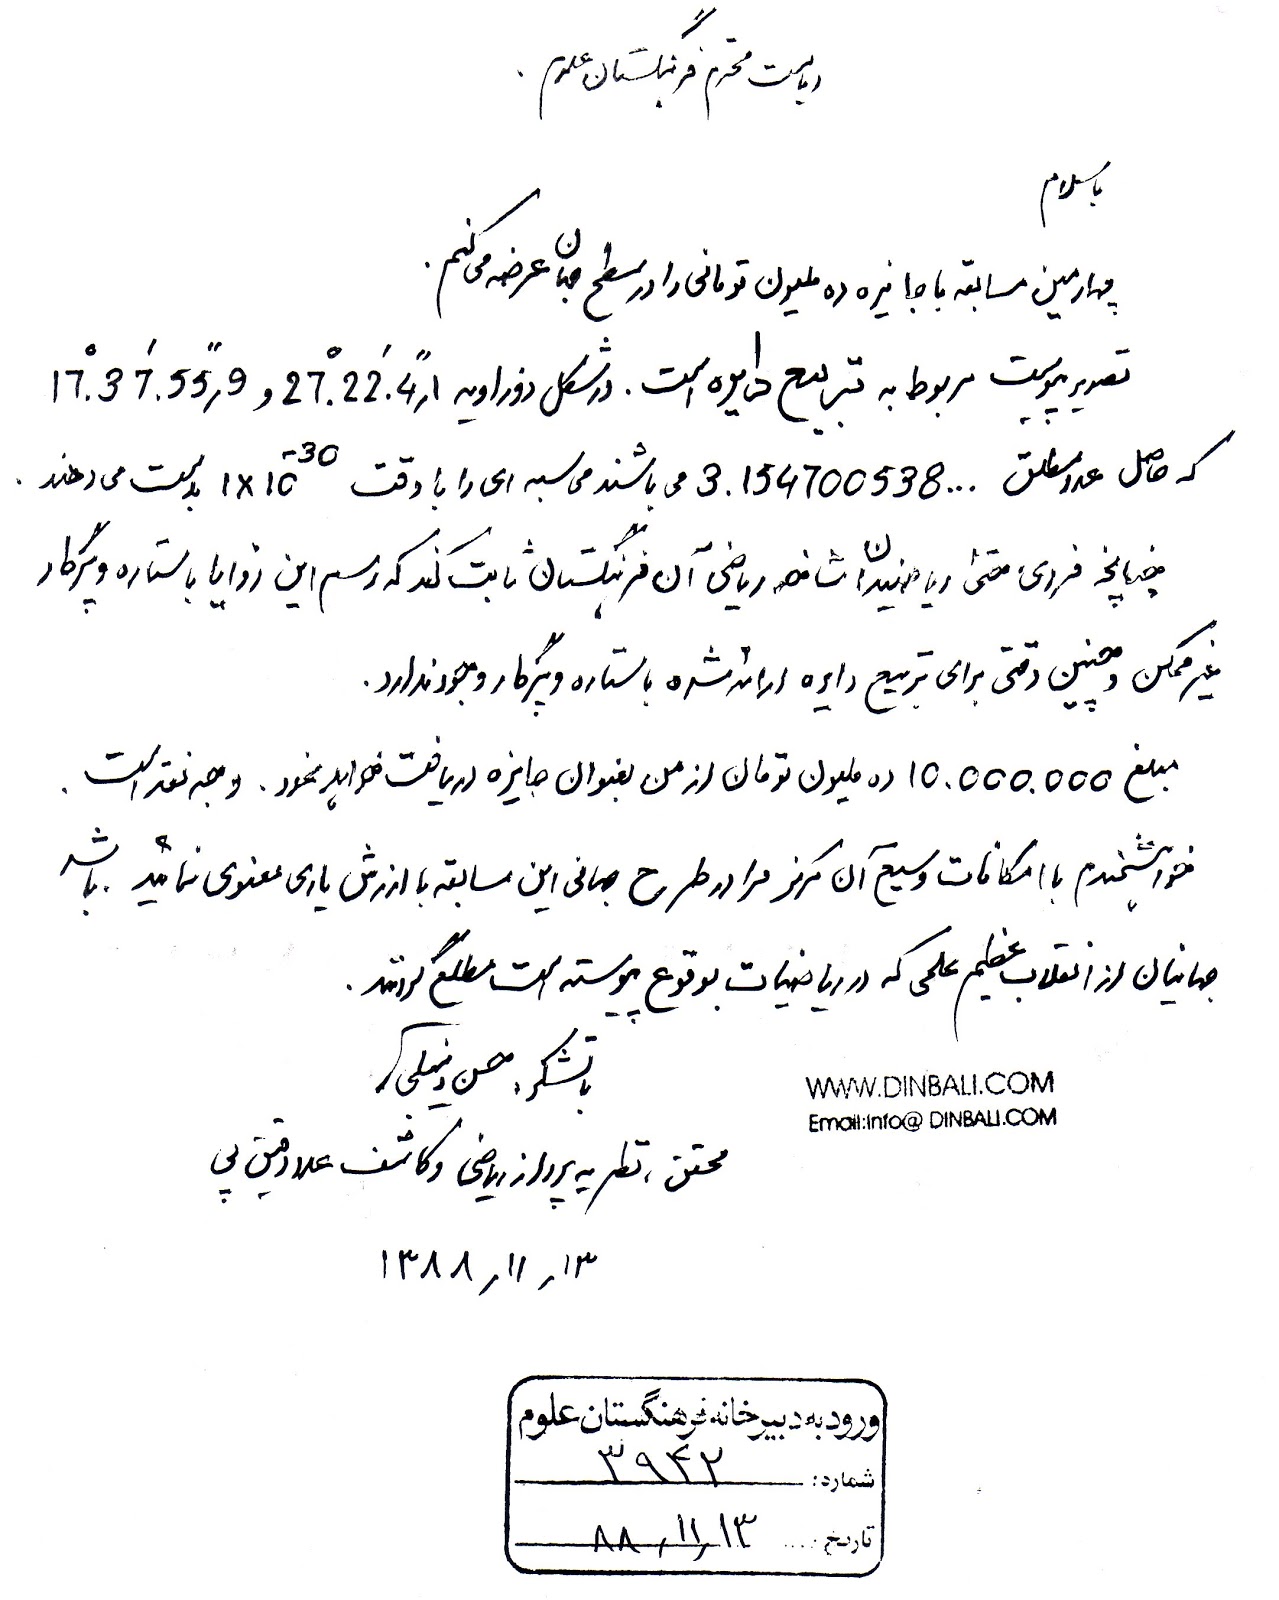 ریاست محترم فرهنگستان علوم .
با سلام
چهارمین مسابقه با جایزه ده ملیون تومانی را در سطح جهان عرضه می کنم .
تصویر پیوست مربوط به تربیع دایره است . در شکل دو زاویه 27°.22′.4″,1 و 17°.37′.55″,9
که حاصل عدد مطلق ...3.154700538 می باشند محاسبه ای را با دقت 1×10⁻³⁰ بدست می دهند .
چنانچه فردی حتی ریاضیدانان شاخه ریاضی آن فرهنگستان ثابت کند که رسم این زوایا با ستاره و پرگار
غیر ممکن و چنین دقتی برای تربیع دایره ارائه شده با ستاره و پرگار وجود ندارد .
مبلغ 10.000.000 ده ملیون تومان از من بعنوان جایزه دریافت خواهد نمود . وجه نقد است .
خواهشمندم با امکانات وسیع آن مرکز مرا در طرح جهانی این مسابقه با ارزش یاری معنوی نمائید . باشد
جهانیان از انقلاب عظیم علمی که در ریاضیات بوقوع پیوسته است مطلع گردند .
با تشکر ، حسن دنبلی
WWW.DINBALI.COM
Email:info@ DINBALI.COM
محقق ، نظریه پرداز ریاضی و کاشف عدد دقیق پی
۱۳ر۱۱ر۱۳۸۸
ورود به دبیرخانه فرهنگستان علوم
شماره: ۳۹۴۲
تاریخ .... ۸۸ر۱۱ر۱۳